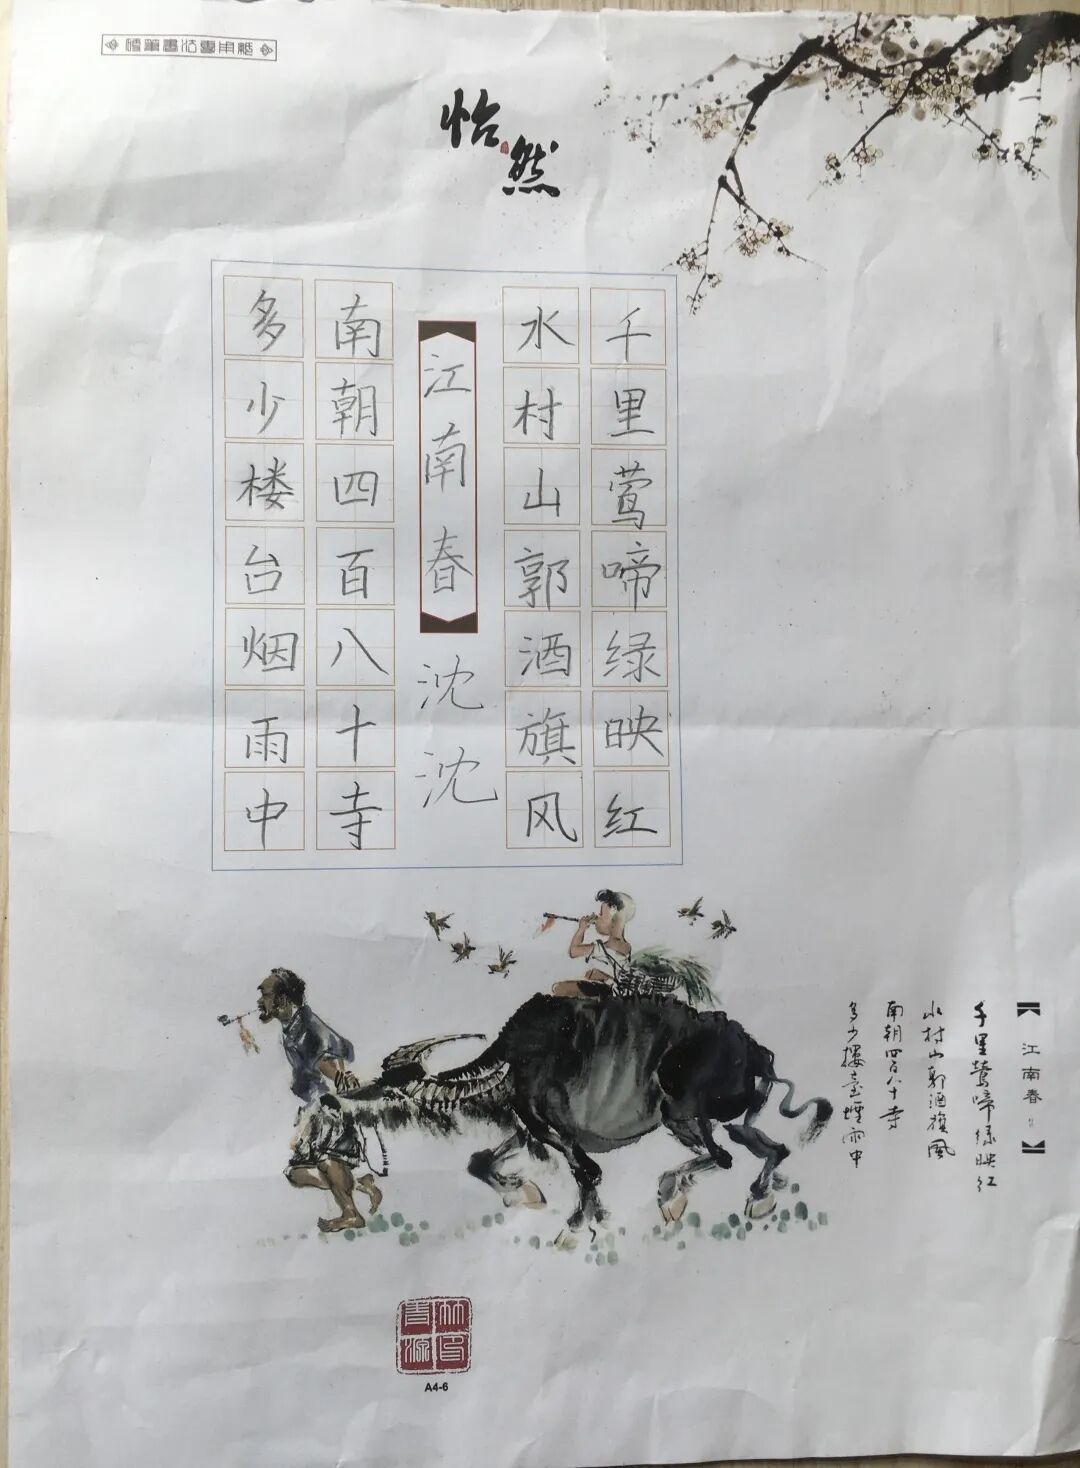 硬筆書法專用紙
怡然
千里莺啼绿映红
水村山郭酒旗风
江南春
沈沈
南朝四百八十寺
多少楼台烟雨中
【江南春】
千里鶯啼绿映红
水村山郭酒旗風
南朝四百八十寺
多少樓臺煙雨中
A4-6